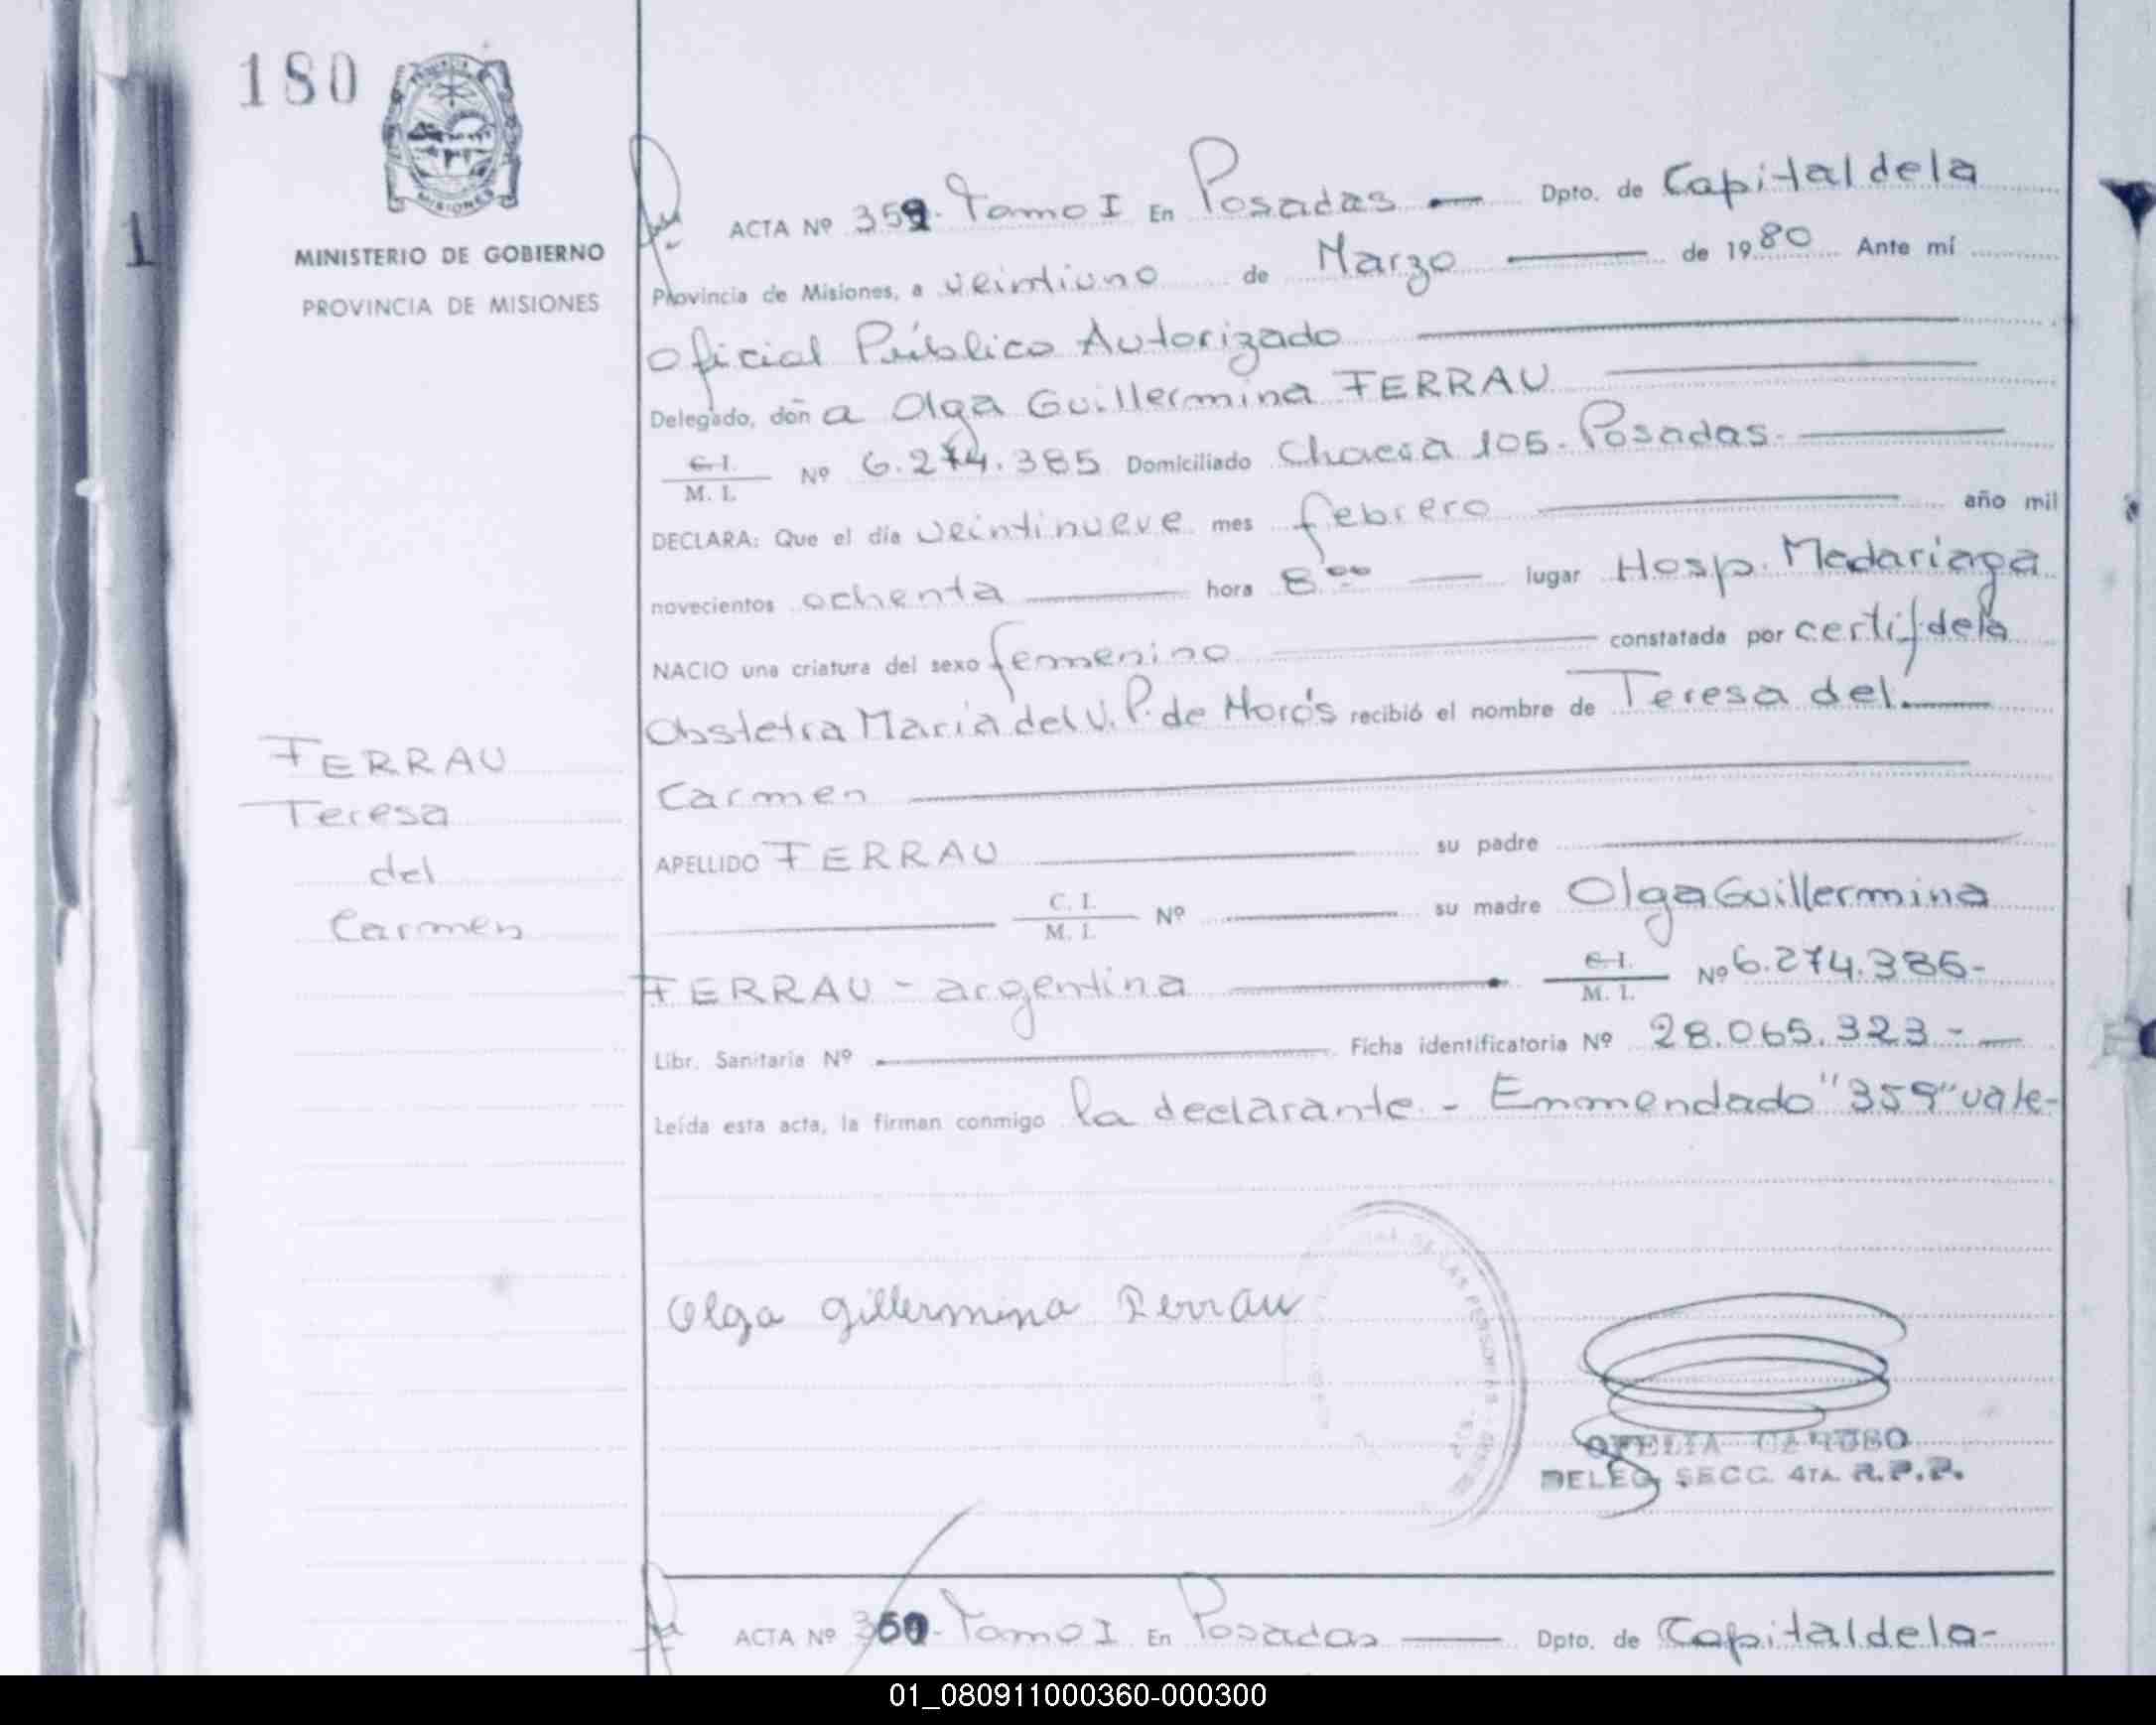 180
PROVINCIA
MISIONES
1
MINISTERIO DE GOBIERNO
PROVINCIA DE MISIONES
FERRAU
Teresa
del
Carmen
ACTA Nº 359. Tomo I En Posadas — Dpto. de Capital de la
Provincia de Misiones, a veintiuno de Marzo — de 1980 Ante mí
Oficial Público Autorizado
Delegado, don a Olga Guillermina FERRAU
C. I. / M. I. Nº 6.274.385 Domiciliado Chacra 105. Posadas.
DECLARA: Que el día veintinueve mes febrero — año mil
novecientos ochenta — hora 8 00 — lugar Hosp. Madariaga
NACIO una criatura del sexo femenino — constatada por certif de la
Obstetra Maria del V. P. de Morós recibió el nombre de Teresa del
Carmen
APELLIDO FERRAU — su padre
C. I. / M. I. Nº — su madre Olga Guillermina
FERRAU - argentina — C. I. / M. I. Nº 6.274.385-
Libr. Sanitaria Nº — Ficha identificatoria Nº 28.065.323 -
Leída esta acta, la firman conmigo la declarante - Enmendado "359" vale-
Olga Gillermina Ferrau
DE LAS PERSONAS
OFELIA CARUSO
DELEG. SECC. 4TA. R.P.P.
ACTA Nº 360. Tomo I En Posadas — Dpto. de Capital de la-
01_080911000360-000300